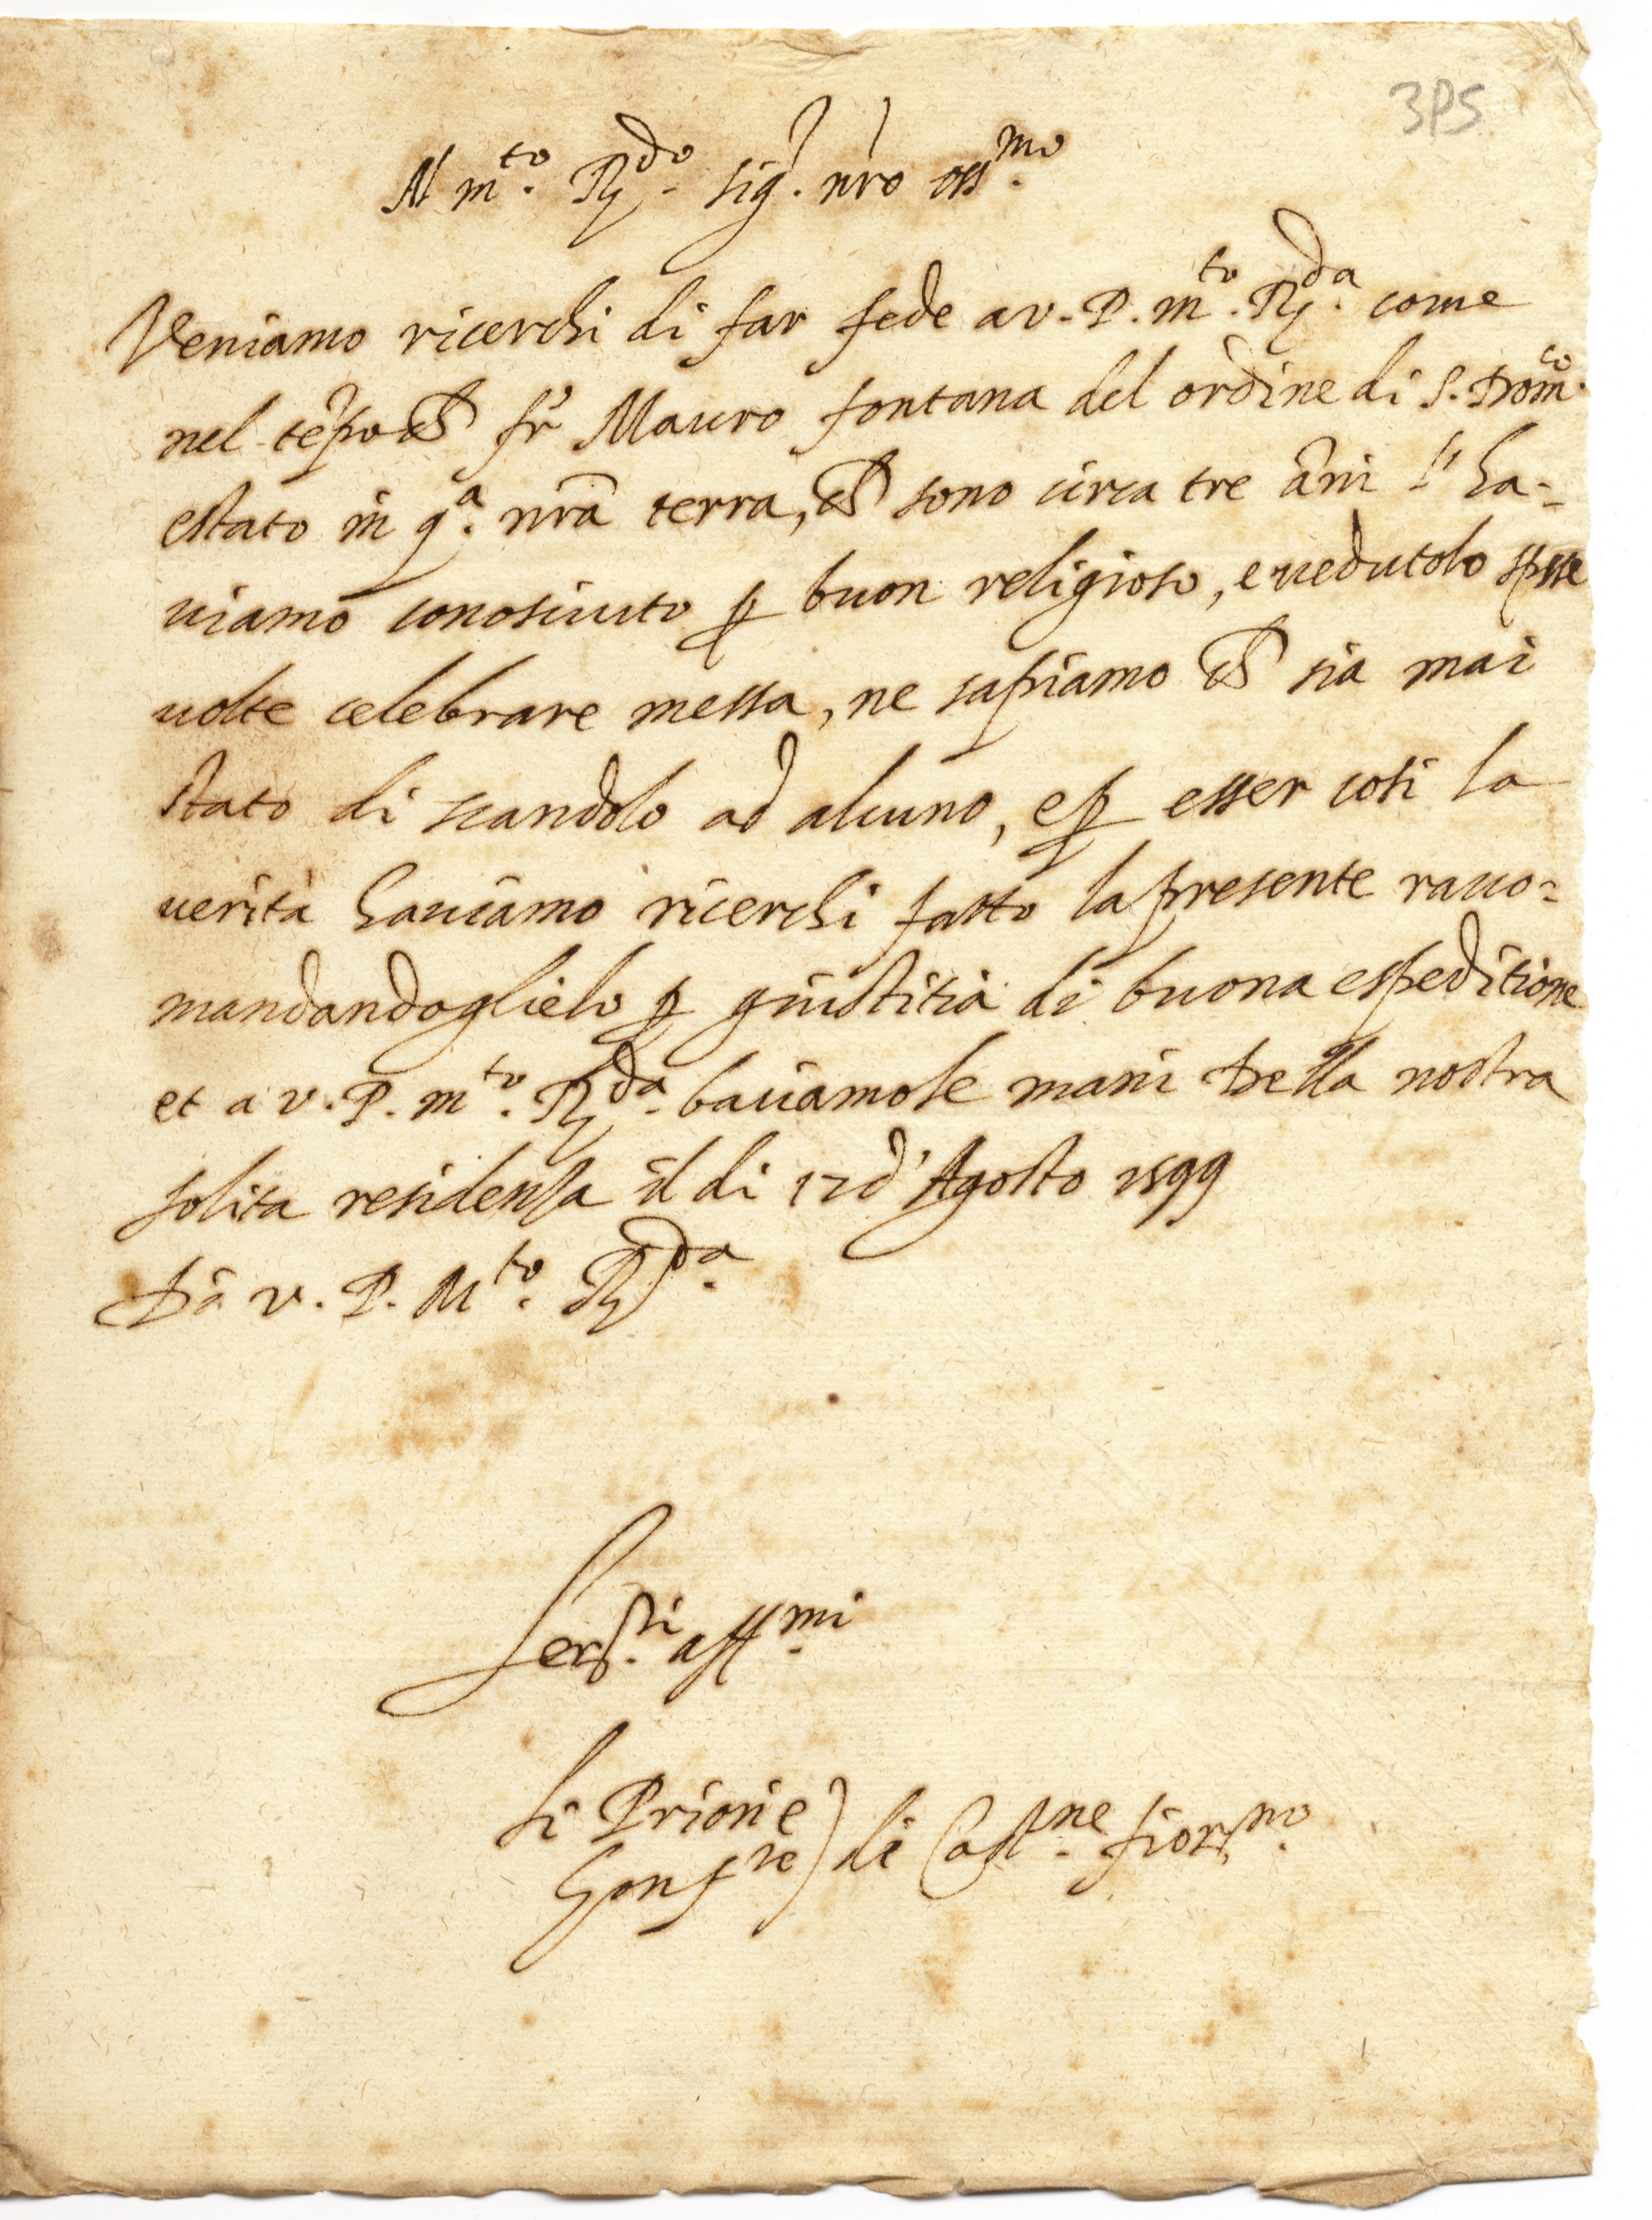 3P5
Al m.to R.do sig.r nr̃o oss.mo
Veniamo ricerchi di far fede a v. P. m.to R.da come
nel tẽpo che fr̃ Mauro fontana del ordine di S. Dom.co
estato in q.a nr̃a terra, che sono circa tre ãni l'ha-
uiamo conosciuto p buon religioso, e uedutolo spesse
uolte celebrare messa, ne sapiamo che sia mai
stato di scandolo ad alcuno, e p esser cosi la
uerità hauiamo ricerchi fatto la presente racco=
mandandoglielo p giustitia di buona espeditione
et a v. P. m.to R.da baciamo le mani Della nostra
solita residensa il di 12 d'Agosto 1599
Di v. P. M.to R.da
Ser.ri aff.mi
Li Priori e
Gonf.re) di Cast.ne fior.no